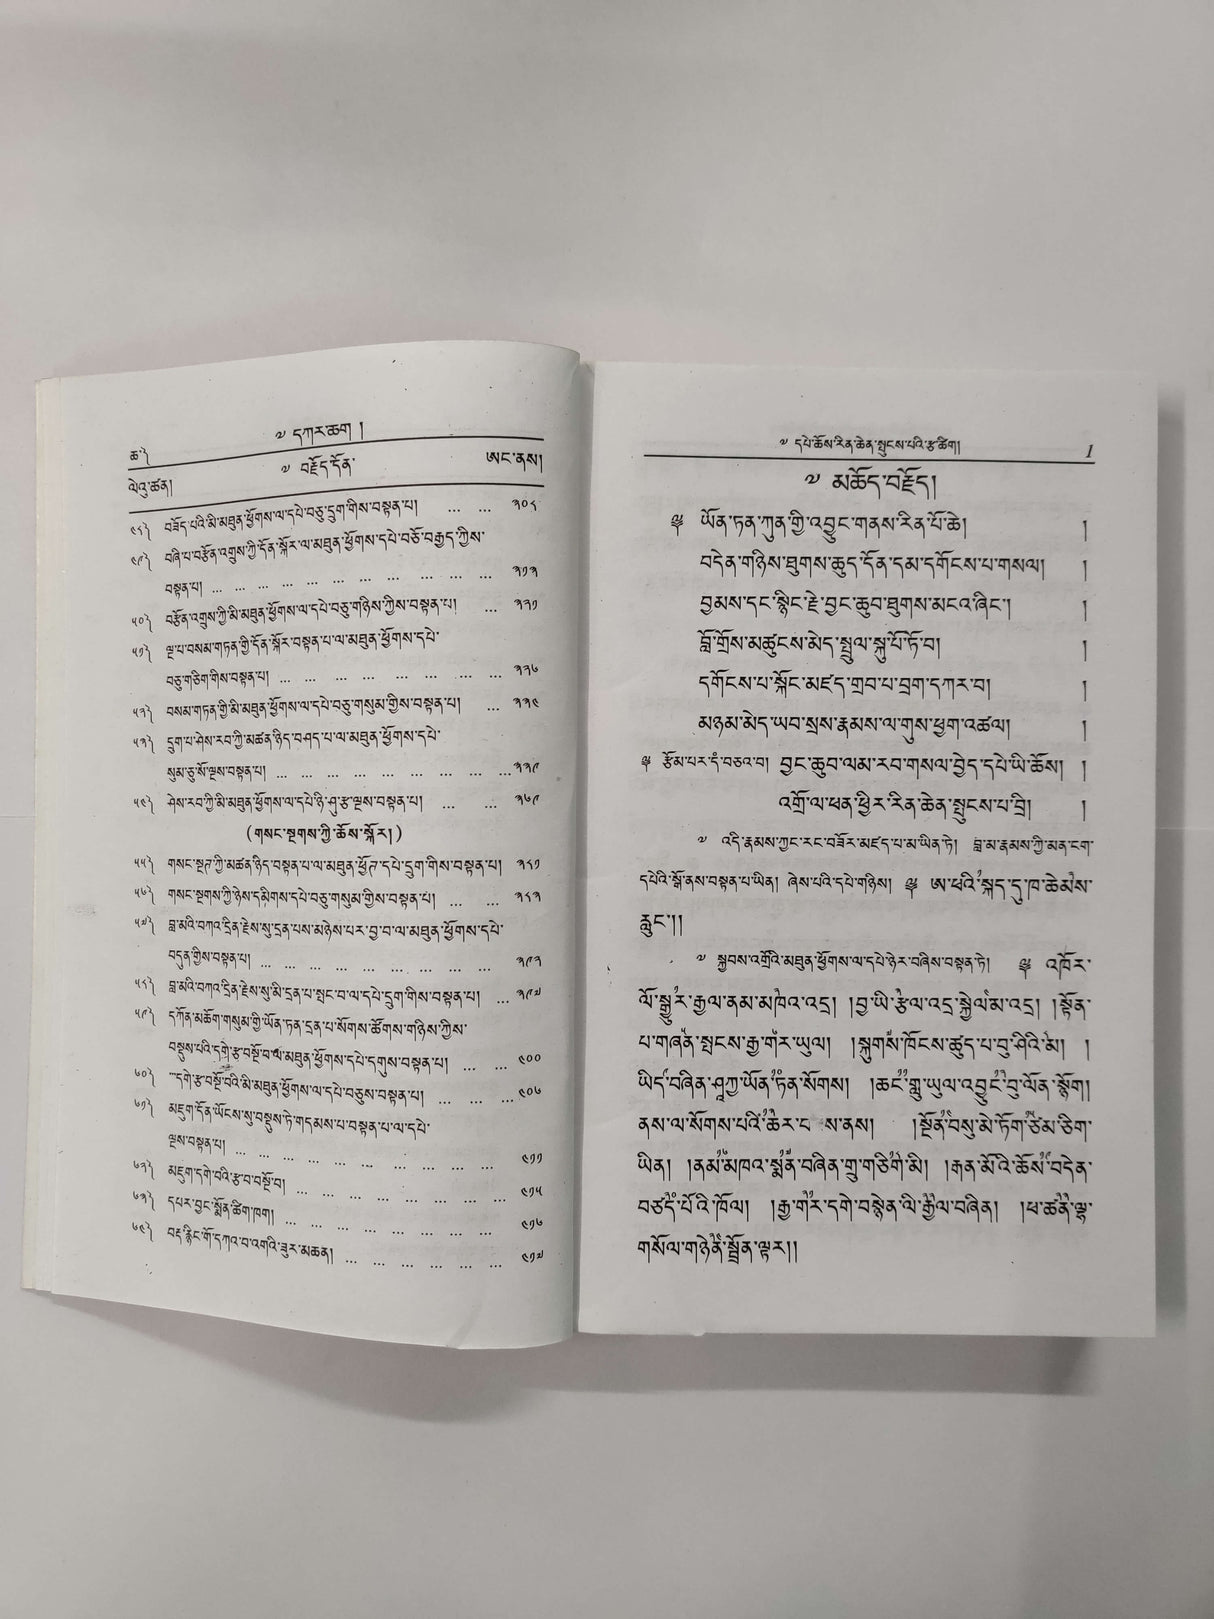 ༧ དཀར་ཆག །
ཆ༽
ལེའུ་ཚན། ༧ བརྗོད་དོན་ ཨང་ནས།
༤༨༽ བཟོད་པའི་མི་མཐུན་ཕྱོགས་ལ་དཔེ་བཅུ་དྲུག་གིས་བསྟན་པ། ... ... ༣༠༨
༤༩༽ བཞི་པ་བརྩོན་འགྲུས་ཀྱི་དོན་སྐོར་ལ་མཐུན་ཕྱོགས་དཔེ་བཅོ་བརྒྱད་ཀྱིས་
བསྟན་པ། ... ... ... ... ... ... ... ... ... ... ༣༡༣
༥༠༽ བརྩོན་འགྲུས་ཀྱི་མི་མཐུན་ཕྱོགས་ལ་དཔེ་བཅུ་གཉིས་ཀྱིས་བསྟན་པ། ... ༣༢༡
༥༡༽ ལྔ་པ་བསམ་གཏན་གྱི་དོན་སྐོར་བསྟན་པ་ལ་མཐུན་ཕྱོགས་དཔེ་
བཅུ་གཅིག་གིས་བསྟན་པ། ... ... ... ... ... ... ... ... ༣༢༦
༥༢༽ བསམ་གཏན་གྱི་མི་མཐུན་ཕྱོགས་ལ་དཔེ་བཅུ་གསུམ་གྱིས་བསྟན་པ། ... ༣༣༤
༥༣༽ དྲུག་པ་ཤེས་རབ་ཀྱི་མཚན་ཉིད་བཤད་པ་ལ་མཐུན་ཕྱོགས་དཔེ་
སུམ་ཅུ་སོ་ལྔས་བསྟན་པ། ... ... ... ... ... ... ... ... ... ༣༣༩
༥༤༽ ཤེས་རབ་ཀྱི་མི་མཐུན་ཕྱོགས་ལ་དཔེ་ཉི་ཤུ་རྩ་ལྔས་བསྟན་པ། ... ... ༣༦༩
(གསང་སྔགས་ཀྱི་ཆོས་སྐོར།)
༥༥༽ གསང་སྔགས་ཀྱི་མཚན་ཉིད་བསྟན་པ་ལ་མཐུན་ཕྱོགས་དཔེ་དྲུག་གིས་བསྟན་པ། ༣༨༡
༥༦༽ གསང་སྔགས་ཀྱི་ཉེས་དམིགས་དཔེ་བཅུ་གསུམ་གྱིས་བསྟན་པ། ... ... ༣༨༣
༥༧༽ བླ་མའི་བཀའ་དྲིན་རྗེས་སུ་དྲན་པས་མཉེས་པར་བྱ་བ་ལ་མཐུན་ཕྱོགས་དཔེ་
བདུན་གྱིས་བསྟན་པ། ... ... ... ... ... ... ... ... ... ༣༩༢
༥༨༽ བླ་མའི་བཀའ་དྲིན་རྗེས་སུ་མི་དྲན་པ་སྤང་བ་ལ་དཔེ་དྲུག་གིས་བསྟན་པ། ... ༣༩༧
༥༩༽ དཀོན་མཆོག་གསུམ་གྱི་ཡོན་ཏན་དྲན་པ་སོགས་ཚོགས་གཉིས་ཀྱིས་
བསྡུས་པའི་དགེ་རྩ་བསྔོ་བ་ལ་མཐུན་ཕྱོགས་དཔེ་དགུས་བསྟན་པ། ... ... ༤༠༠
༦༠༽ དགེ་རྩ་བསྔོ་བའི་མི་མཐུན་ཕྱོགས་ལ་དཔེ་བཅུས་བསྟན་པ། ... ... ... ༤༠༦
༦༡༽ མཇུག་དོན་ཡོངས་སུ་བསྡུས་ཏེ་གདམས་པ་བསྟན་པ་ལ་དཔེ་
ལྔས་བསྟན་པ། ... ... ... ... ... ... ... ... ... ... ༤༡༡
༦༢༽ མཇུག་དགེ་བའི་རྩ་བ་བསྔོ་བ། ... ... ... ... ... ... ... ... ༤༡༥
༦༣༽ དཔར་བྱང་སྨོན་ཚིག་ཁག། ... ... ... ... ... ... ༤༡༦
༦༤༽ བརྡ་རྙིང་གོ་དཀའ་བ་འགའི་ཟུར་མཆན། ... ... ... ... ... ... ༤༡༧
༧ དཔེ་ཆོས་རིན་ཆེན་སྤུངས་པའི་རྩ་ཚིག། 1
༧ མཆོད་བརྗོད།
༄ ཡོན་ཏན་ཀུན་གྱི་འབྱུང་གནས་རིན་པོ་ཆེ། །
བདེན་གཉིས་ཐུགས་ཆུད་དོན་དམ་དགོངས་པ་གསལ། །
བྱམས་དང་སྙིང་རྗེ་བྱང་ཆུབ་ཐུགས་མངའ་ཞིང་། །
བློ་གྲོས་མཚུངས་མེད་སྤྲུལ་སྐུ་པོ་ཏོ་བ། །
དགོངས་པ་སྐོང་མཛད་གྲབ་པ་བྲག་དཀར་བ། །
མཉམ་མེད་ཡབ་སྲས་རྣམས་ལ་གུས་ཕྱག་འཚལ། །
༄ རྩོམ་པར་དཾ་བཅའ་བ། བྱང་ཆུབ་ལམ་རབ་གསལ་བྱེད་དཔེ་ཡི་ཆོས། །
འགྲོ་ལ་ཕན་ཕྱིར་རིན་ཆེན་སྤུངས་པ་བྲི། །
༧ འདི་རྣམས་ཀྱང་རང་བཟོར་མཛད་པ་མ་ཡིན་ཏེ། བླ་མ་རྣམས་ཀྱི་མན་ངག་
དཔེའི་སྒོ་ནས་བསྟན་པ་ཡིན། ཞེས་པའི་དཔེ་གཉིས། ༄ ཨ་ཕའི་སྐད་དུ་ཁ་ཆེམས་
རླུང་།།
༧ སྐྱབས་འགྲོའི་མཐུན་ཕྱོགས་ལ་དཔེ་ཉེར་བཞིས་བསྟན་ཏེ། ༄ འཁོར་
ལོ་སྒྱུར་རྒྱལ་ནམ་མཁའི་འདྲ། །བྱ་ཡི་རྩེལ་འདྲ་སྐྱེལ་མ་འདྲ། །སྟོན་
པ་གཞན་སྤངས་རྒྱ་གར་ཡུལ། །སྐུགས་ཁོངས་ཚུད་པ་བུ་ཤིའི་མ། །
ཡིད་བཞིན་ཤཱཀྱ་ཡོན་ཏན་སོགས། །ཆང་གླུ་ཡུལ་འབྱུང་བུ་ལོན་སྙོག།
ནས་ལ་སོགས་པའི་ཆེར་ ས་ནས། །སྔོན་བསུ་མེ་ཏོག་ཙམ་ཅིག་
ཡིན། །ནམ་མཁའ་སྨན་བཞིན་གྲུ་གཅིག་མི། །རྒན་མོའི་ཆོས་བདེན་
བཙད་པོའི་ཁོལ། །རྒྱ་གར་དགེ་བསྙེན་ལི་རྒྱལ་བཞིན། །ཕ་ཚན་ལྷ་
གསོལ་གཉེན་སྦྲོན་ལྟར།།